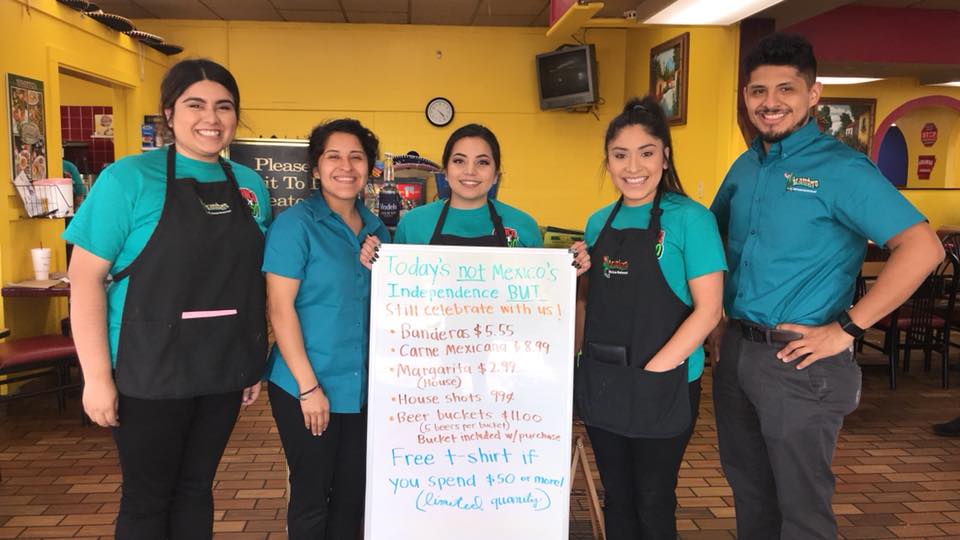 Please
it To
eated
Today's not Mexico's
Independence BUT
Still celebrate with us!
• Banderas $5.55
• Carne Mexicana $8.99
• Margarita $2.99
(House)
• House shots 99¢
• Beer buckets $11.00
(5 beers per bucket)
Bucket included w/purchase
Free t-shirt if
you spend $50 or more!
(limited quantity)